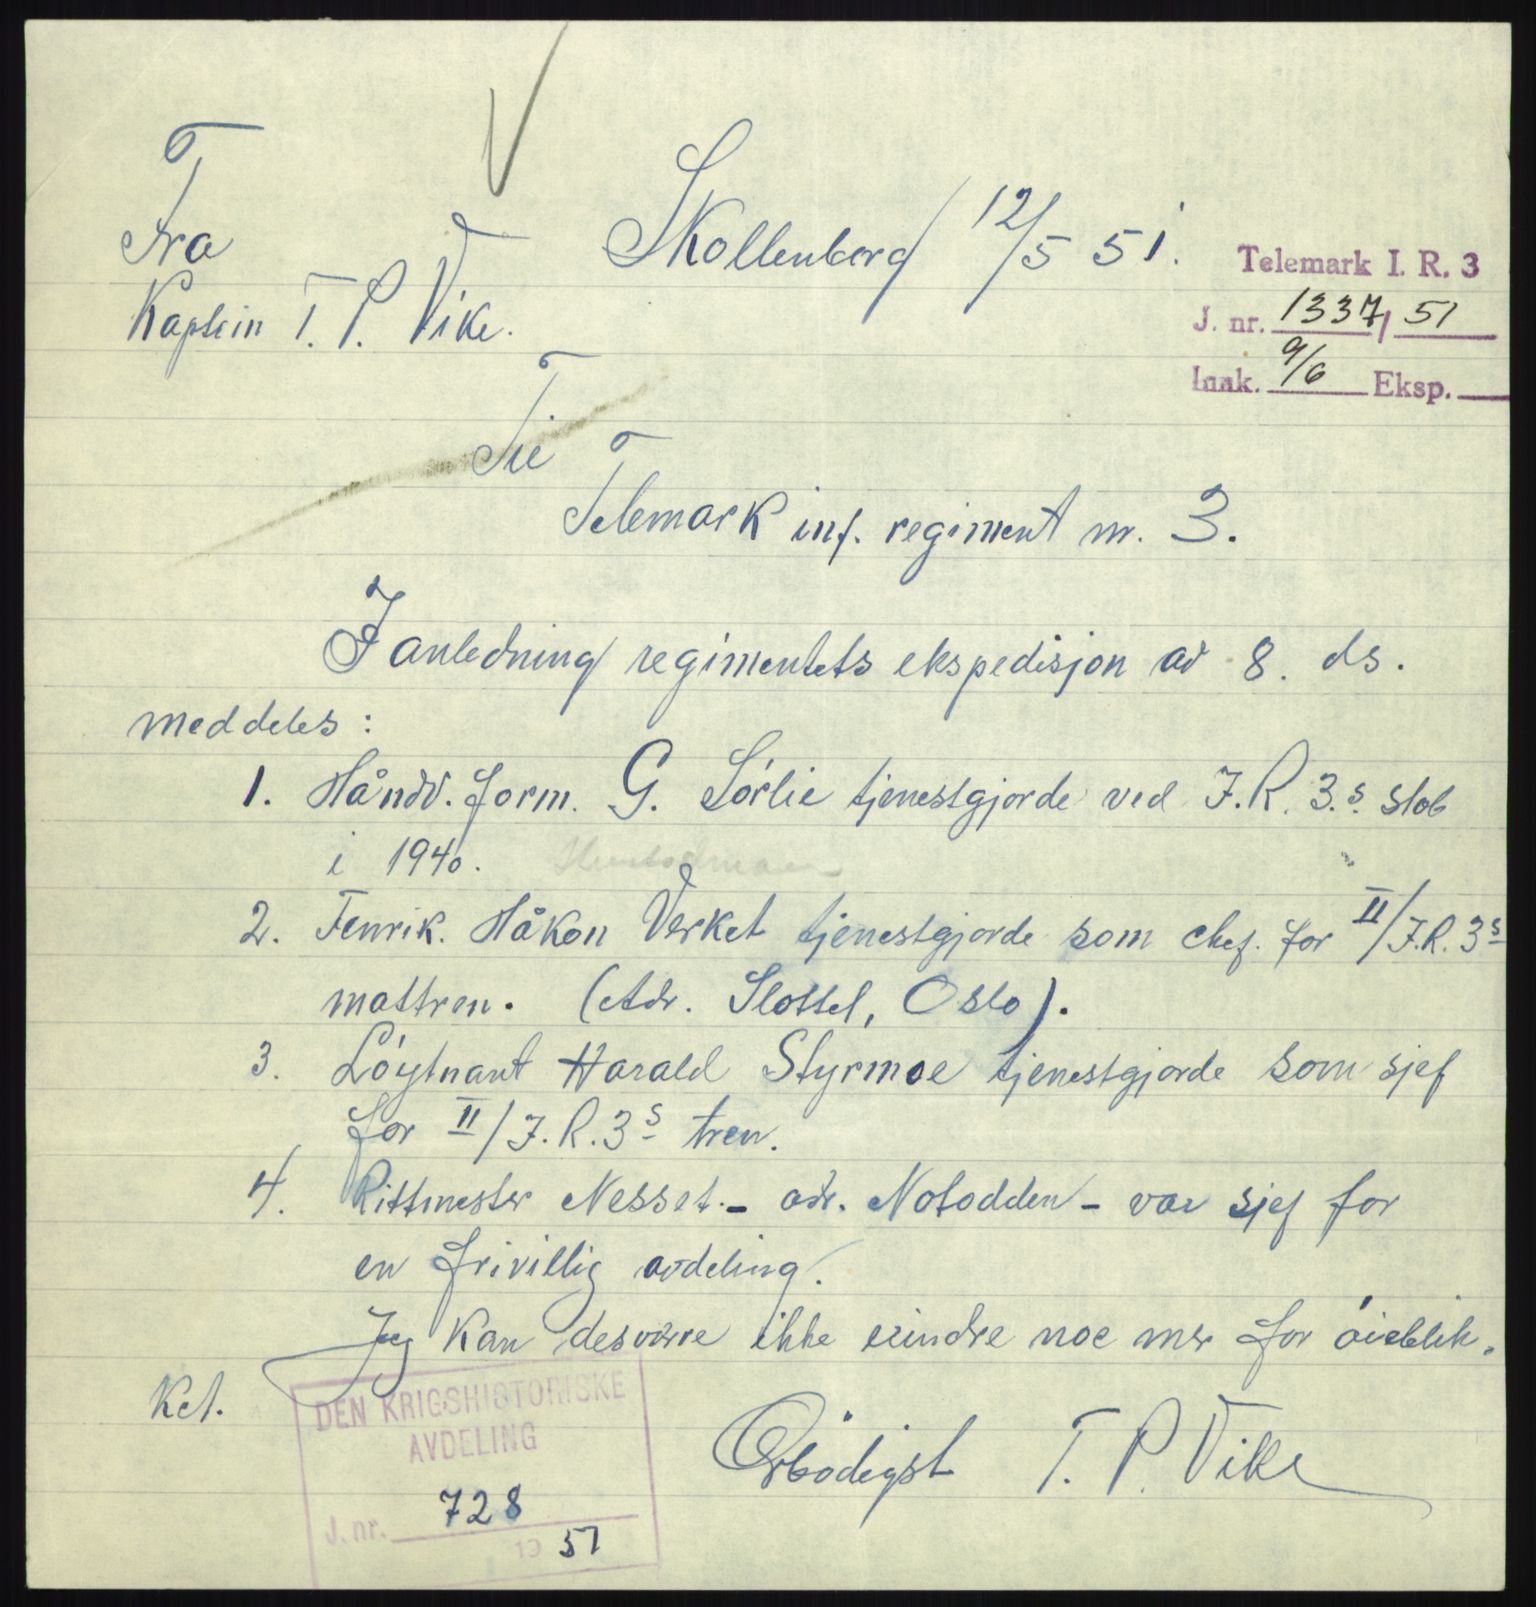 Fra
Kaptein T. P. Vike.
Skollenborg 12/5 51.
Telemark I. R. 3
J. nr. 1337/ 51
Innk. 9/6 Eksp.
Til
Telemark inf. regiment nr. 3.
I anledning regimentets ekspedisjon av 8. ds.
meddeles:
1. Håndv. form. G. Sörlie tjenestgjorde ved I.R. 3.s stab
i 1940.
2. Fenrik. Håkon Verket tjenestgjorde som chef. for II/I.R. 3s
mattren. (Adr. Slottet, Oslo).
3. Löytnant Harald Styrmoe tjenestgjorde som sjef
for II/I.R. 3s tren.
4. Rittmester Nesset. - adr. Notodden - var sjef for
en frivillig avdeling.
Jeg kan desværre ikke erindre noe mer for öieblik-
ket.
Ærbödigst T. P. Vike
DEN KRIGSHISTORISKE
AVDELING
J. nr. 728
19 51